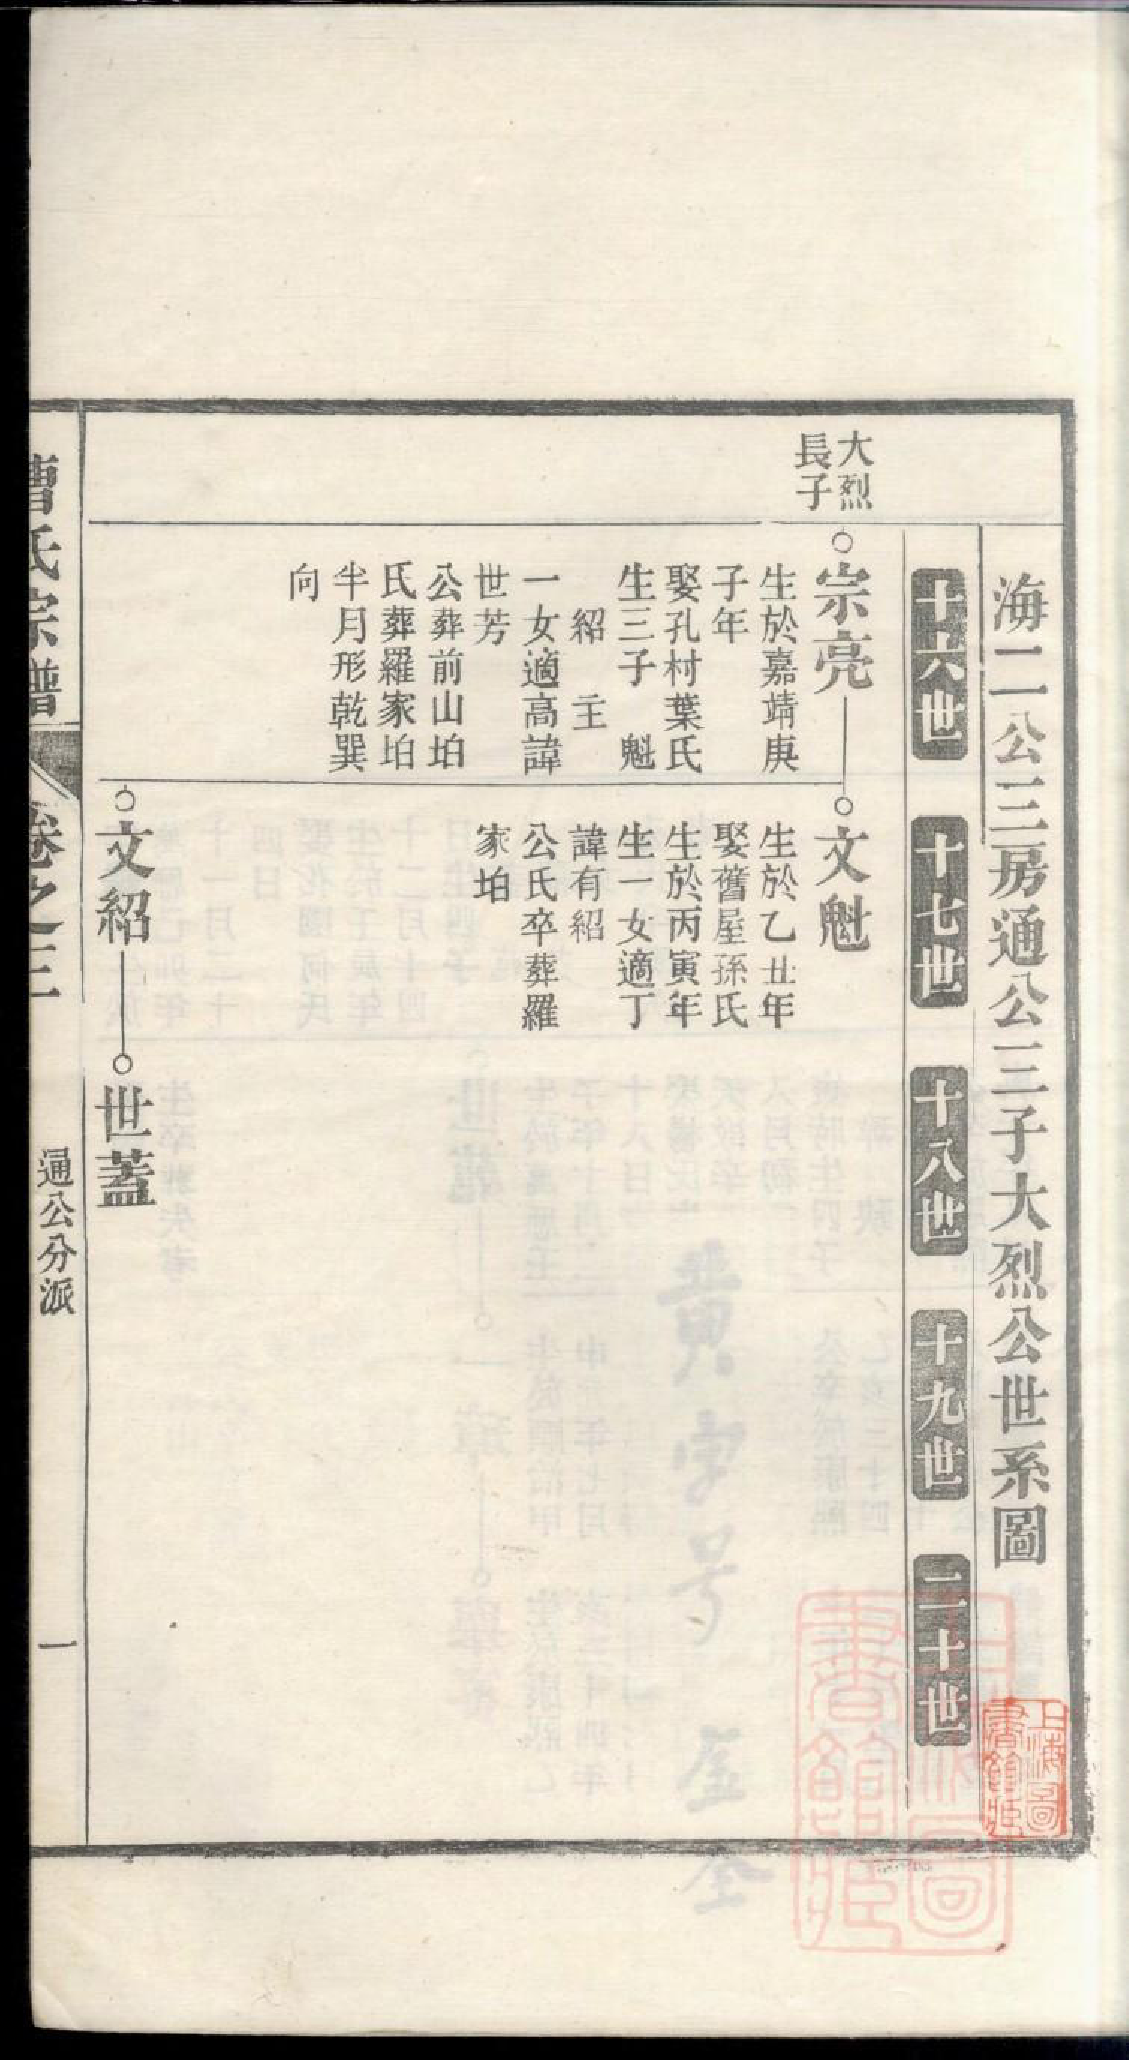 海二公三房通公三子大烈公世系圖
十六世
十七世
十八世
十九世
二十世
大烈
長子
宗亮
生於嘉靖庚
子年
娶孔村葉氏
生三子 魁
紹 主
一女適高諱
世芳
公葬前山垍
氏葬羅家垍
半月形乾巽
向
文魁
生於乙丑年
娶舊屋孫氏
生於丙寅年
生一女適丁
諱有紹
公氏卒葬羅
家垍
文紹
世蓋
曹氏宗譜
卷之三
通公分派
一
上海圖
書館藏
黃字号